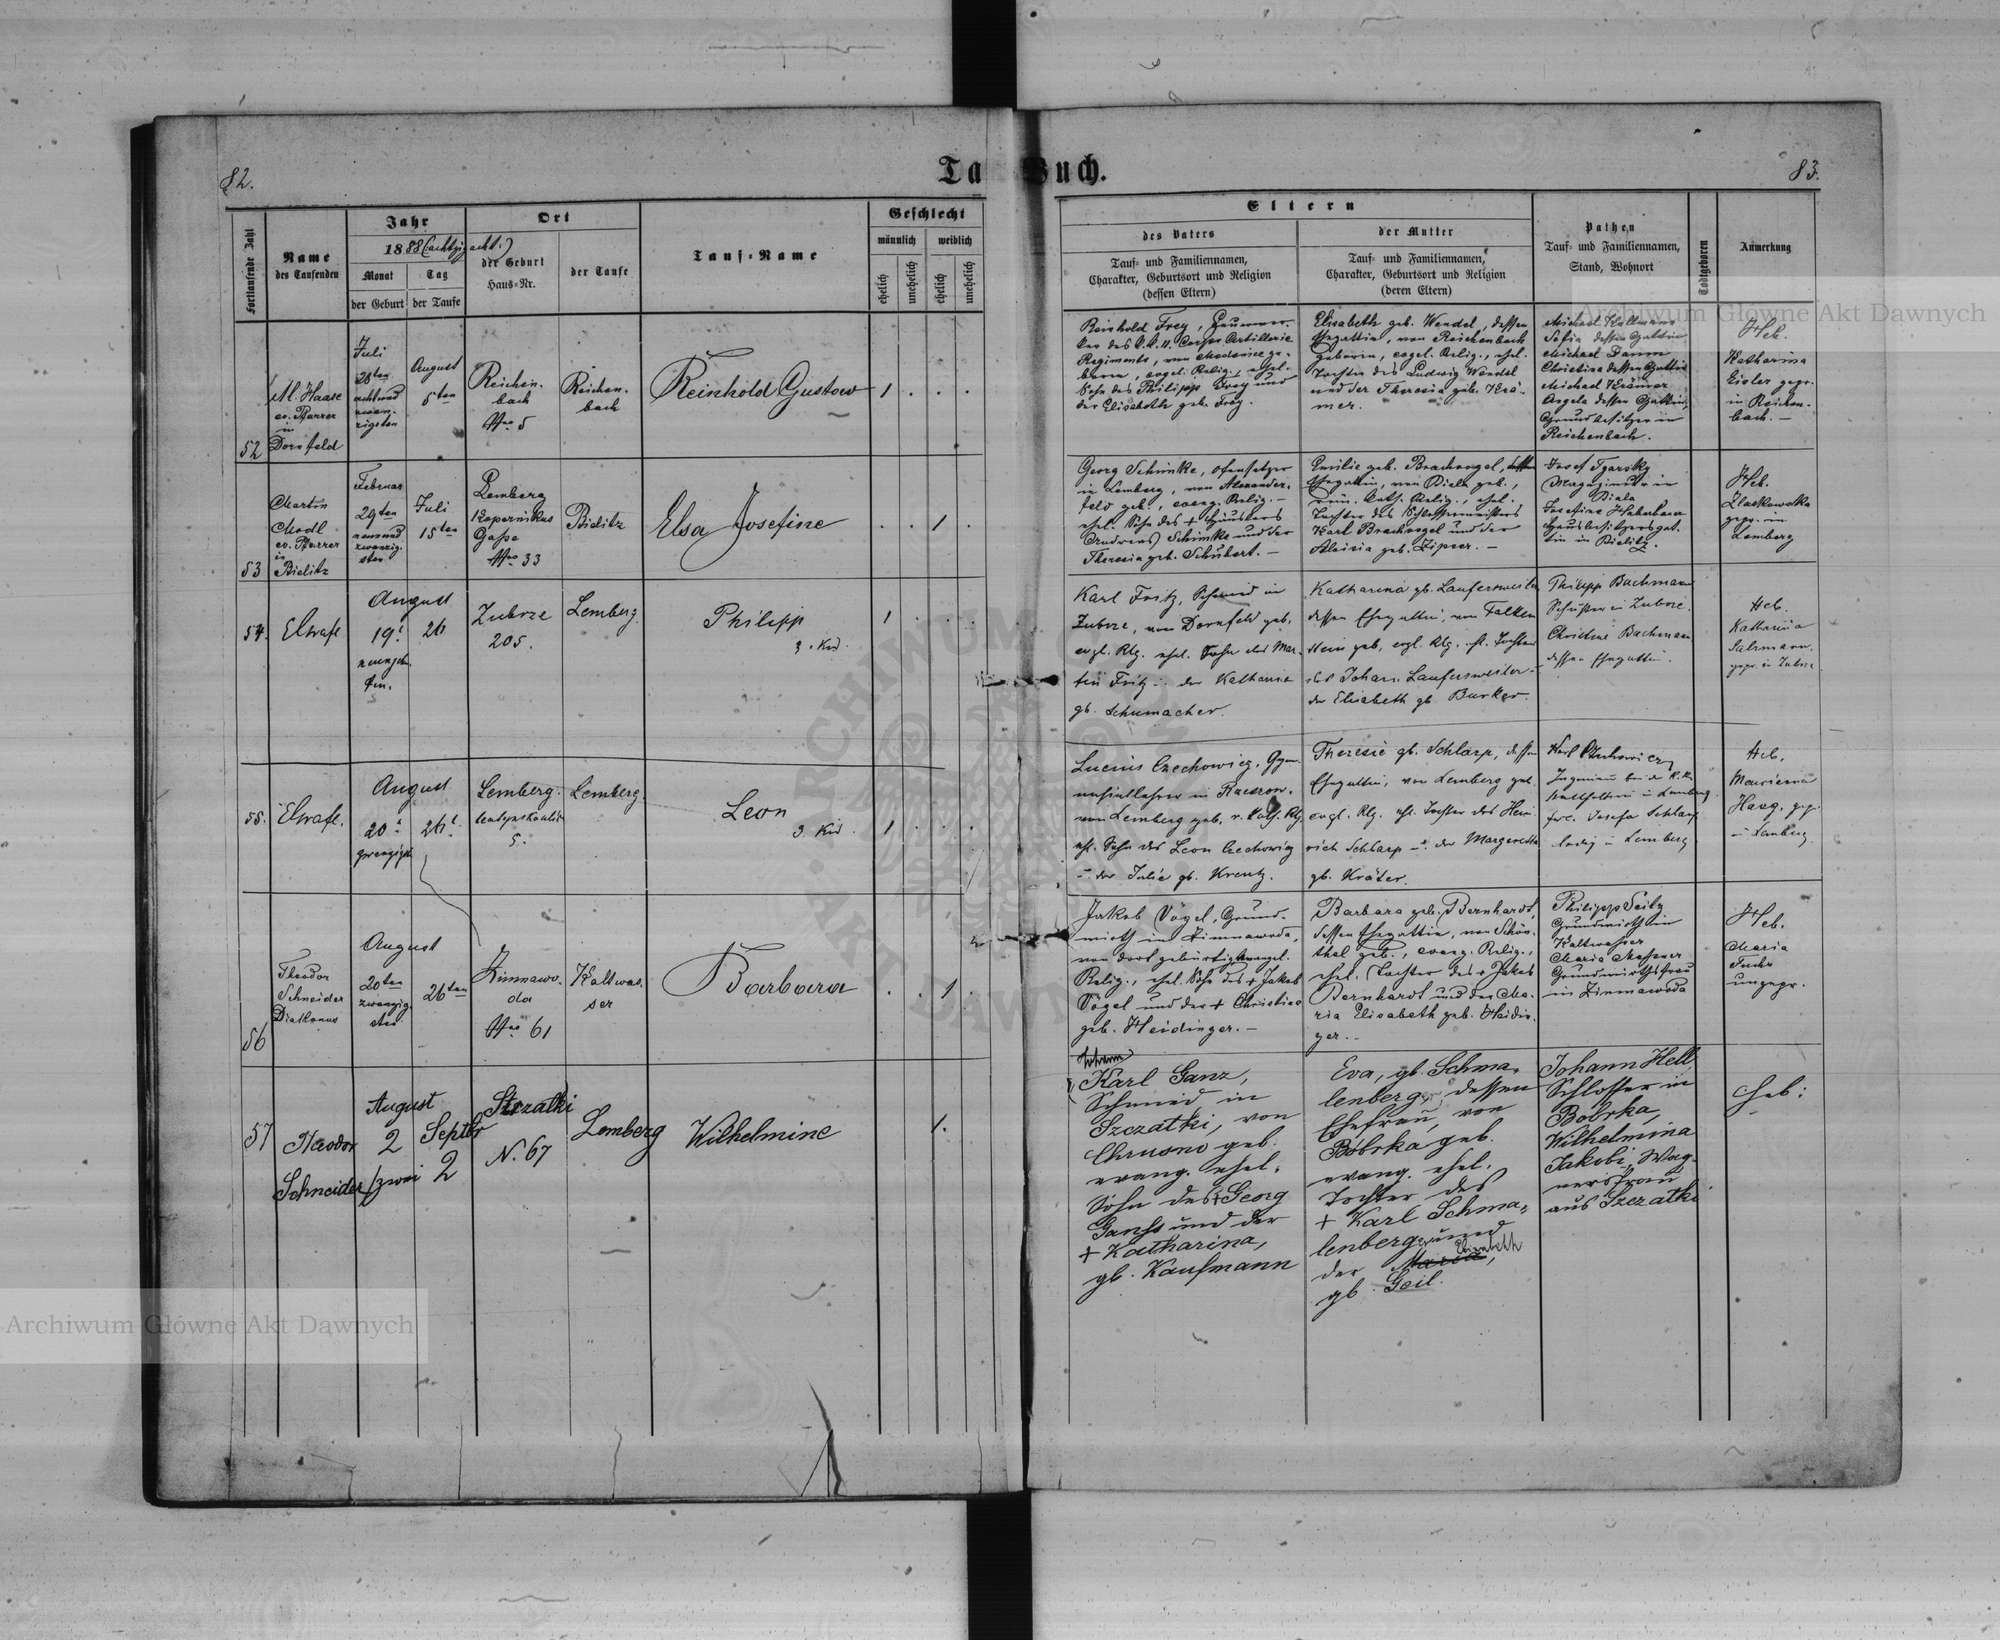 82.
Ta
Buch.
83.
Fortlaufende Zahl
Name
des Taufenden
Jahr
1888 (achtzigacht.)
Monat
Tag
der Geburt
der Taufe
Ort
der Geburt
Haus=Nr.
der Taufe
Tauf=Name
Geschlecht
männlich
weiblich
ehelich
unehelich
ehelich
unehelich
Eltern
des Vaters
Tauf= und Familiennamen,
Charakter, Geburtsort und Religion
(dessen Eltern)
der Mutter
Tauf= und Familiennamen,
Charakter, Geburtsort und Religion
(deren Eltern)
Pathen
Tauf= und Familiennamen,
Stand, Wohnort
Todtgeboren
Anmerkung
52
M. Haase
ev. Pfarrer
in
Dornfeld
Juli
28ten
achtund
zwan-
zigsten
August
5ten
Reichen-
bach
Nro 5
Reichen-
bach
Reinhold Gustav
1
Reinhold Frey,
des k.k. 11. Corps Artillerie
Regiments, von
evgel. Relig., ehel.
Sohn des Philipp Frey und
der Elisabeth geb. Frey.
Elisabeth geb. Wendel, dessen
Ehegattin, von Reichenbach
geboren, evgel. Relig., ehel.
Tochter des Ludwig Wendel
und der Theresia geb. Krä-
mer.
Michael Kullmann
Sofia dessen Gattin
Michael Damm
Christina dessen Gattin
Michael Krämer
Angela dessen Gattin,
Grundbesitzer in
Reichenbach.
Heb.
Katharina
Eisler gepr.
in Reichen-
bach. –
53
Martin
Modl
ev. Pfarrer
in
Bielitz
Februar
29ten
neunund
zwanzig-
sten
Juli
15ten
Lemberg
Kopernikus
Gasse
Nro 33
Bielitz
Elsa Josefine
1
Georg Schimke, Ofensetzer
in Lemberg, von Alexander-
feld geb., evang. Relig. –
ehel. Sohn des + Häuslers
Schimke und der
Theresia geb. Schubert. –
Emilie geb. Brachvogel, dessen
Ehegattin, von Biala geb.,
röm. kath. Relig., ehel.
Tochter des Schlossermeisters
Karl Brachvogel und der
Aloisia geb. Zipser. –
Josef
Magazineur in
Biala
Josefine
Hausbesitzersgat-
tin in Bielitz.
Heb.
Zlaskowska
gepr. in
Lemberg
54.
August
19t
neunzehn-
ten.
26
Zubrze
205.
Lemberg
Philipp
3. Kind.
1
Karl Fritz, Schmied in
Zubrze, von Dornfeld geb.
evgl. Rlg. ehel. Sohn des Mar-
tin Fritz u. der Katharina
gb. Schumacher.
Katharina gb. Laufersweiler
dessen Ehegattin, von Falken
stein geb, evgl. Rlg. ehl. Tochter
des Johann Laufersweiler u.
der Elisabeth gb. Burker.
Philipp Bachmann
in Zubrze.
Christine Bachmann
dessen Ehegattin.
Heb.
Katharina
Salzmann.
gepr. in Zubrze
55.
August
20t
zwanzigst
26t
Lemberg.
5.
Lemberg.
Leon
3. Kind.
1
Lucius Czechowicz, Gym-
nasiallehrer in Rzeszow.
von Lemberg geb. r. kath. Rlg.
ehl. Sohn des Leon Czechowicz
u. der Julie gb. Kreutz.
Theresie gb. Schlarp, dessen
Ehegattin, von Lemberg geb.
evgl. Rlg. ehl. Tochter des Hein
rich Schlarp u. der Margaretha
gb. Kräter.
Karl
Ingenieur bei der k. k.
Statthalterei in Lemberg
Josefa Schlarp
ledig in Lemberg
Heb.
Haag, gepr.
in Lemberg
56
Theodor
Schneider
Diakonus
August
20ten
zwanzig-
sten
26ten
Zimnawo-
da
Nro 61
Kaltwas-
ser
Barbara
1
Jakob Vögel, Grund-
wirth in Zimnawoda,
von dort gebürtig, evangel.
Relig., ehel. Sohn des + Jakob
Vögel und der + Christina
geb. Heidinger. –
Barbara geb. Bernhardt,
dessen Ehegattin, von Schön-
thal geb., evang. Relig.,
ehel. Tochter des + Jakob
Bernhardt und der Ma-
ria Elisabeth geb. Heidin-
ger. –
Philipp Seitz
Grundwirth in
Kaltwasser
Maria Messner
Grundwirthsfrau
in Zimnawoda
Heb.
Maria
Fuchs
ungepr.
57
Theodor
Schneider
August
2
(zwei
Septbr
2
Szczatki
N. 67
Lemberg
Wilhelmine
1.
Johann
Karl Ganz,
Schmied in
Szczatki, von
Chrusno geb.
evang. ehel.
Sohn des + Georg
Ganss und der
+ Katharina,
gb. Kaufmann
Eva, gb. Schma-
lenberg, dessen
Ehefrau, von
Bóbrka geb.
evang. ehel.
Tochter des
+ Karl Schma-
lenberg und
Elisabeth
der Maria,
gb. Geil.
Johann Hell,
Schlosser in
Bobrka,
Wilhelmina
Jakobi, Wag-
nersfrau
aus Szczatki
Heb:
Archiwum Główne Akt Dawnych
Archiwum Główne Akt Dawnych